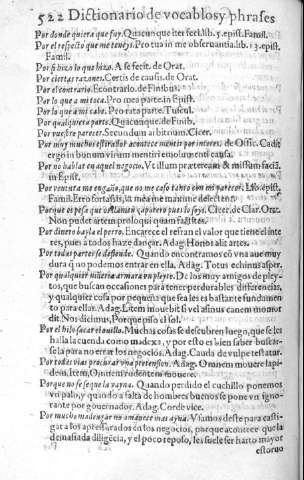 522 Dictionario de vocablos y phrases
Por donde quiera que fuy. Quacunque iter feci. lib. 5. epist. Famil.
Por el respecto que me teneys. Pro tua in me obseruantia. lib. 13. epist.
Famil.
Por si hizo lo que hizo. A se fecit. de Orat.
Por ciertas razones. Certis de causis. de Orat.
Por el contrario. E contrario. de Finibus.
Por lo que a mi toca. Pro mea parte in Epist.
Por lo que a mi cabe. Pro rata parte. Tuscul.
Por qualquiera parte. Quacunque. de Finib.
Por vuestro parecer. Secundum arbitrium. Cicer.
Por muy muchos estiradòr acontece mentir por interes. de Offic. Cadit
ergo in bonum virum mentiri emolumenti causa.
Por no hallar en aquel negocio. Vt illum prætereàm & missum faciã.
in Epist.
Por ventura me engaño, que no me caso tanto con mi parecer.
Famil. Erro fortassis, ià mea me mànime delectent.
Cicer. de Clar. Orat.
Non pudet autem proloqui quum
Por dinero bayla el perro. Encarece el refran el valor que tiene el inte
res, pues a todos haze dançar. Adag. Honos alit artes.
Por todas partes se defiende. Quando encontramos cõ vna aue muy
dura q̃ no podemos entrar en ella. Adag. Totus echinus asper.
Por qualquier niñeria armara en pleyto. De los muy amigos de pley-
tos, que buscan occasiones para tener perdurables differencias,
y qualquier cosa por pequeña que sea les es bastante fundamen
to para ellas. Adag. Litem mouebit si vel asinus canem momor-
dit.
Por el hilo sacar el ouillo. Muchas cosas se descubren luego, que se les
halla la cuenda como madexa, y por esto es bien saber buscar-
sela para no errar los negocios. Adag. Cauda de vulpe testatur.
Por todas vias procurar vna pretension. Adag. Omnem mouere lapi-
dem. Item, Omnem rudentem mouere.
Porque no se que la vayna. Quando perdido el cuchillo ponemos
vn palo, y quando a falta de hombres buenos se pone vn igno-
rante por gouernador. Adag. Cordе vice.
Por mucho madrugar no amanece mas ayna. Vsamos deste para casti-
gar a los apressurados en los negocios, porque acontece que la
demasiada diligẽcia, y el poco reposo, les suele ser harto mayor
estoruo